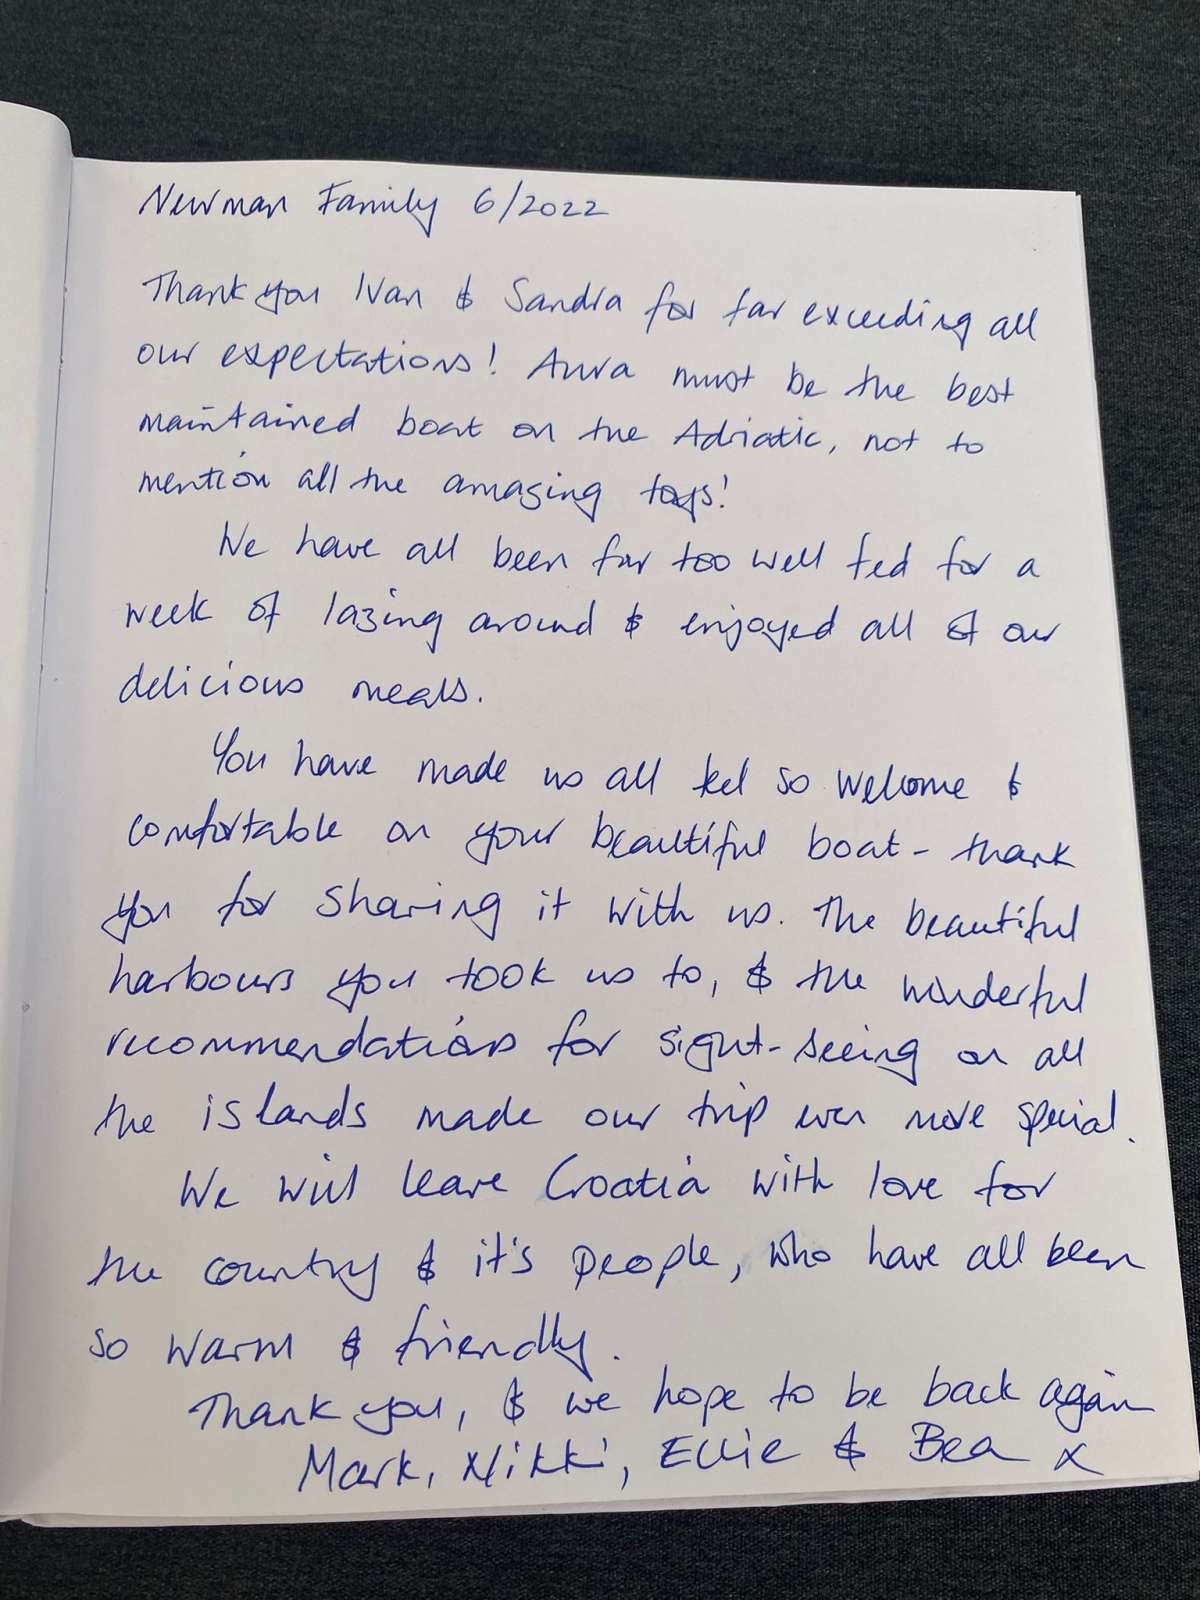 Newman Family 6/2022
Thank you Ivan & Sandra for far exceeding all
our expectations! Aura must be the best
maintained boat on the Adriatic, not to
mention all the amazing toys!
We have all been far too well fed for a
week of lazing around & enjoyed all of our
delicious meals.
You have made us all feel so welcome &
comfortable on your beautiful boat - thank
you for sharing it with us. The beautiful
harbours you took us to, & the wonderful
recommendations for sight-seeing on all
the islands made our trip even more special.
We will leave Croatia with love for
the country & it's people, who have all been
so warm & friendly.
Thank you, & we hope to be back again
Mark, Nikki, Ellie & Bea x